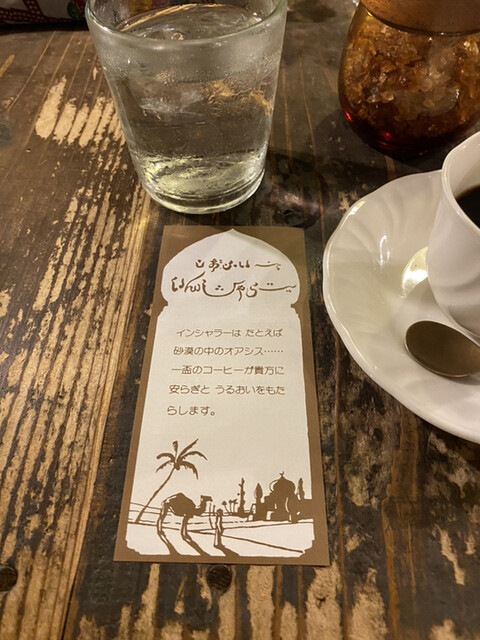 インシャラーは たとえば
砂漠の中のオアシス……
一盃のコーヒーが貴方に
安らぎと うるおいをもた
らします。